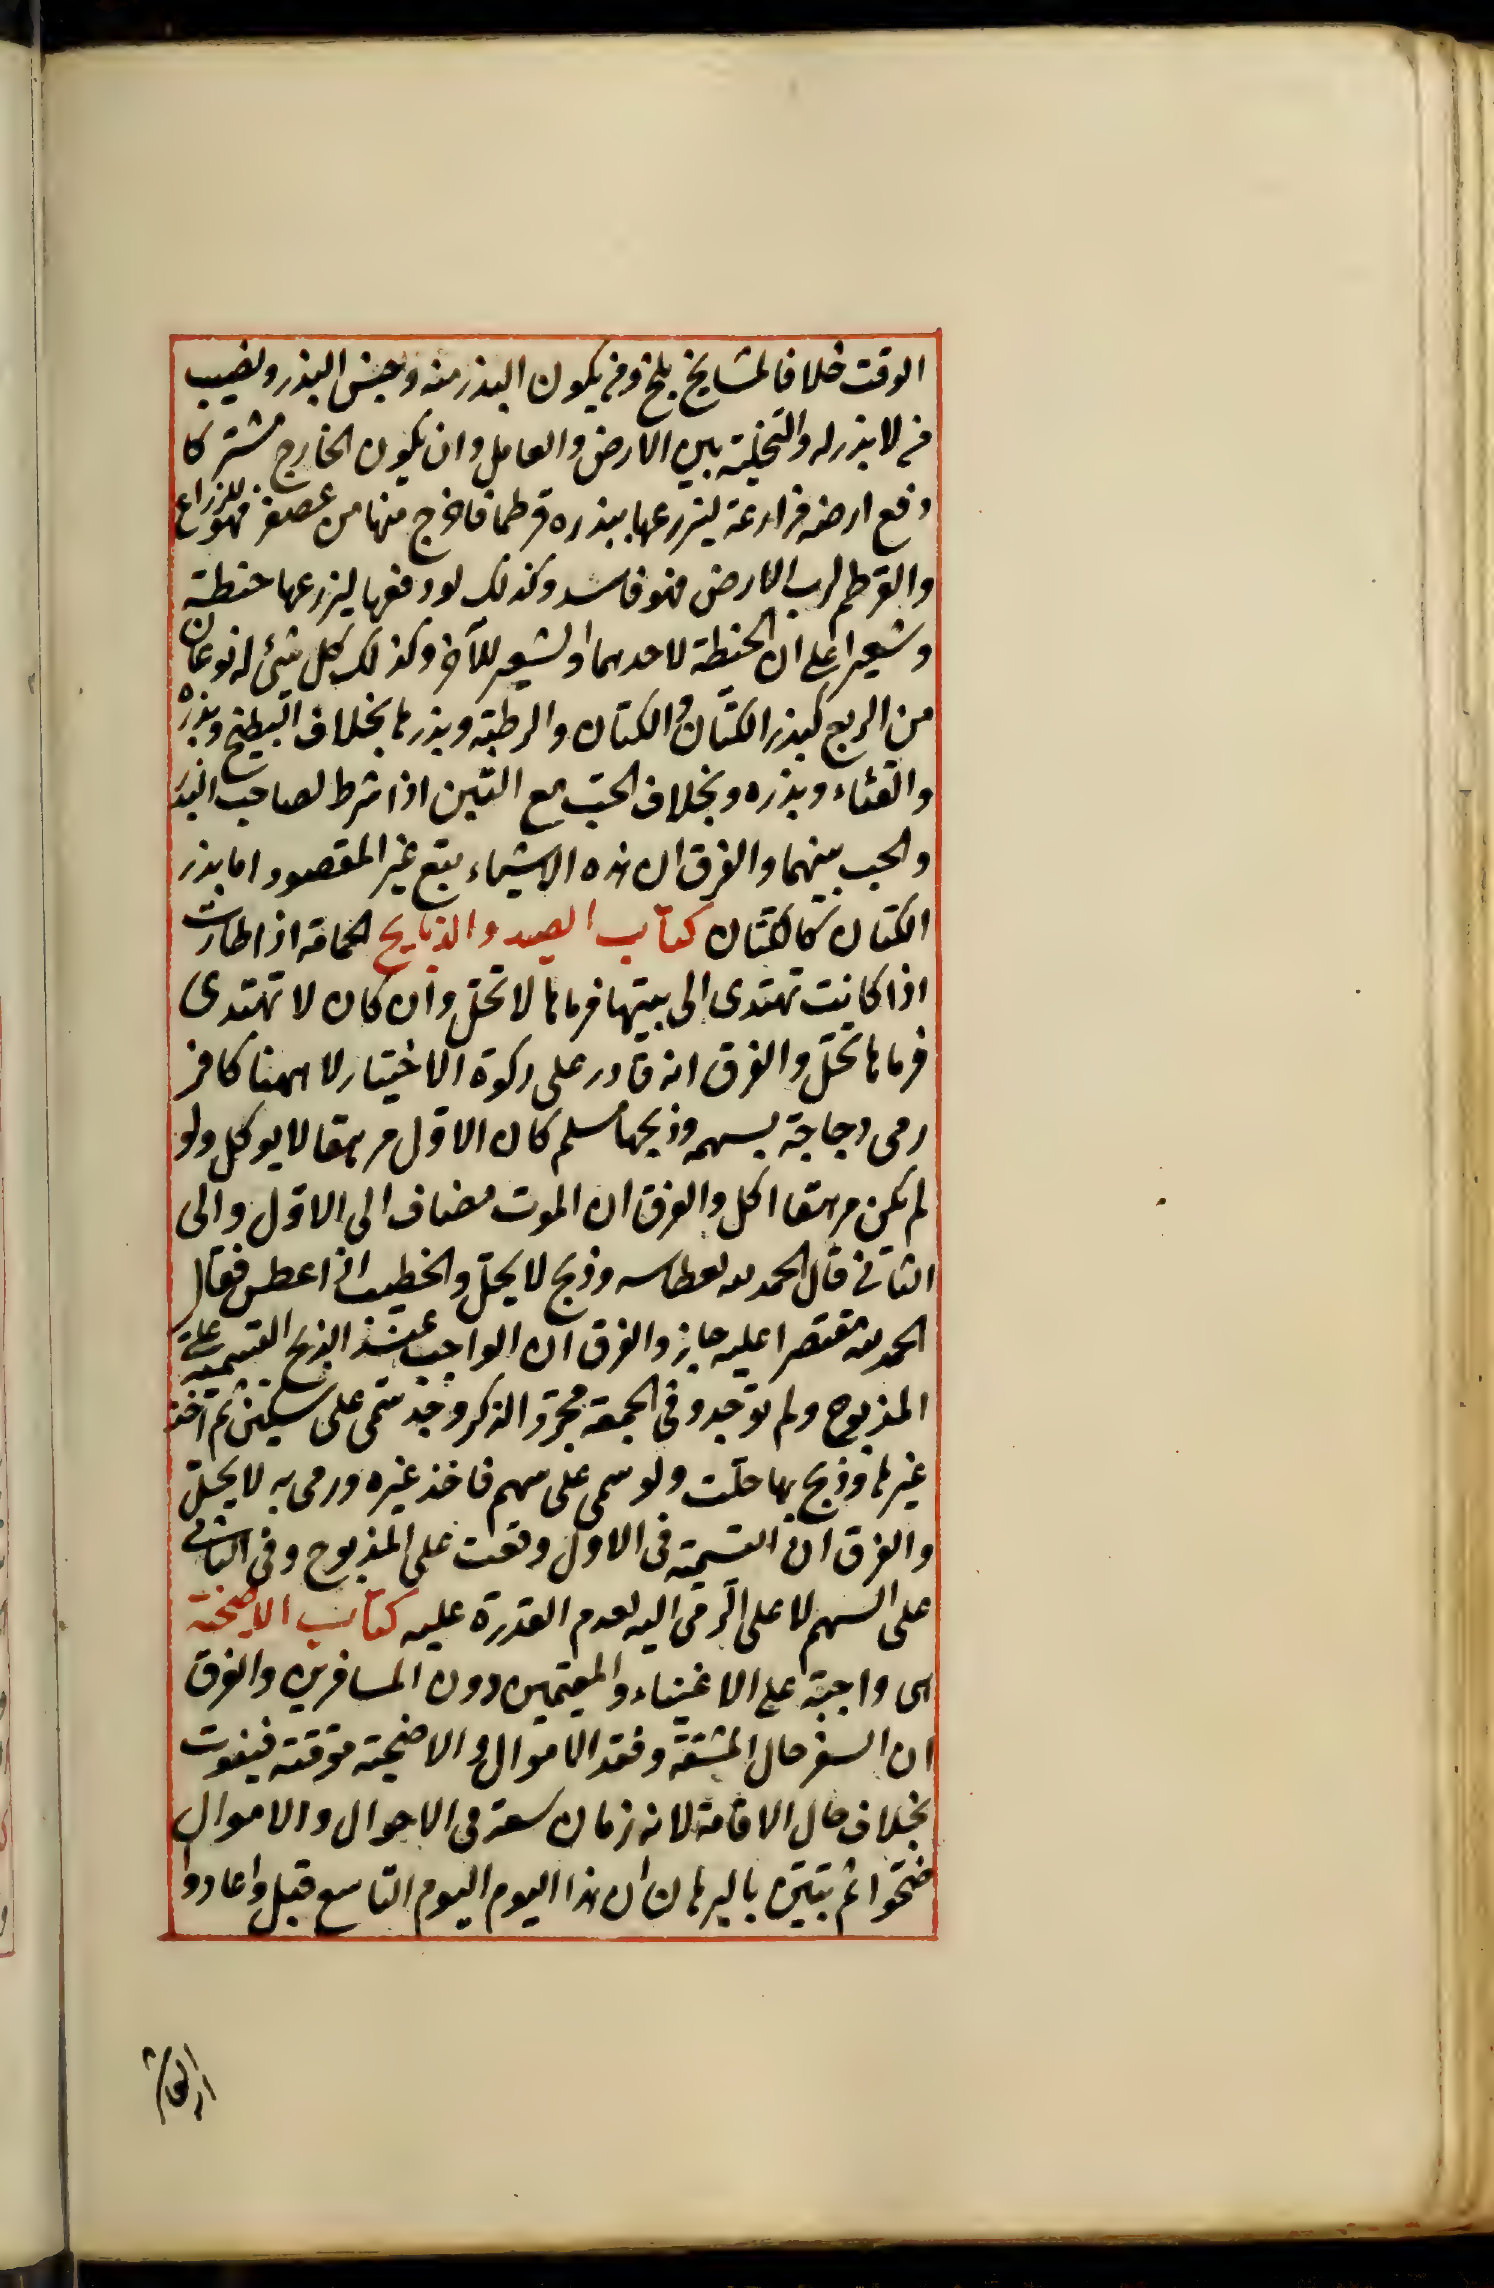 الوقت خلافا لمشايخ بلخ ومن يكون البذر منه وجنس البذر ونصيب
من لا بذر له والتخلية بين الارض والعامل وان يكون الخارج مشتركا
دفع ارضه مزارعة ليزرعها ببذره قرطما فاخرج منها من عصفر فهو للزراع
والقرطم لرب الارض فهو فاسد وكذلك لو دفعها ليزرعها حنطة
وشعيرا على ان الحنطة لاحدهما والشعير للآخر وكذلك كل شيئ له نوعان
من الريع كبذر الكتان والكتان والرطبة وبذرها بخلاف البطيخ وبذره
والقثاء وبذره وبخلاف الحب مع التبن اذا شرط لصاحب البذر
والحب بينهما والفرق ان هذه الاشياء يقع غير المقصود اما بذر
الكتان كالكتان كتاب الصيد والذبايح الحمامة اذا طارت
اذا كانت تهتدى الى بيتها فرماها لا تحل وان كان لا تهتدى
فرماها تحل والفرق انه قادر على ذكوة الاختيار لا ههنا كافر
رمى دجاجة بسهم وذبحها مسلم كان الاول مرهقا لا يوكل ولو
لم يكن مرهقا اكل والفرق ان الموت مضاف الى الاول والى
الثانى قال الحمد لله لعطاسه وذبح لا يحل والخطيب اذا عطس فقال
الحمد لله مقتصرا عليه جاز والفرق ان الواجب عند الذبح التسمية على
المذبوح ولم توجد وفى الجمعة مجرد الذكر وجد سمى على سكين ثم اخذ
غيرها وذبح بها حلت ولو سمى على سهم فاخذ غيره ورمى به لا يحل
والفرق ان التسمية فى الاول وقعت على المذبوح وفى الثانى
على السهم لا على الرمى اليه لعدم القدرة عليه كتاب الاضحية
هى واجبة على الاغنياء والمقيمين دون المسافرين والفرق
ان السفر حال المشقة وفقد الاموال والاضحية موقتة فيفوت
بخلاف حال الاقامة لانه زمان سعة فى الاحوال والاموال
ضحوا ثم تبين بالبرهان ان هذا اليوم اليوم التاسع قبل واعادوا